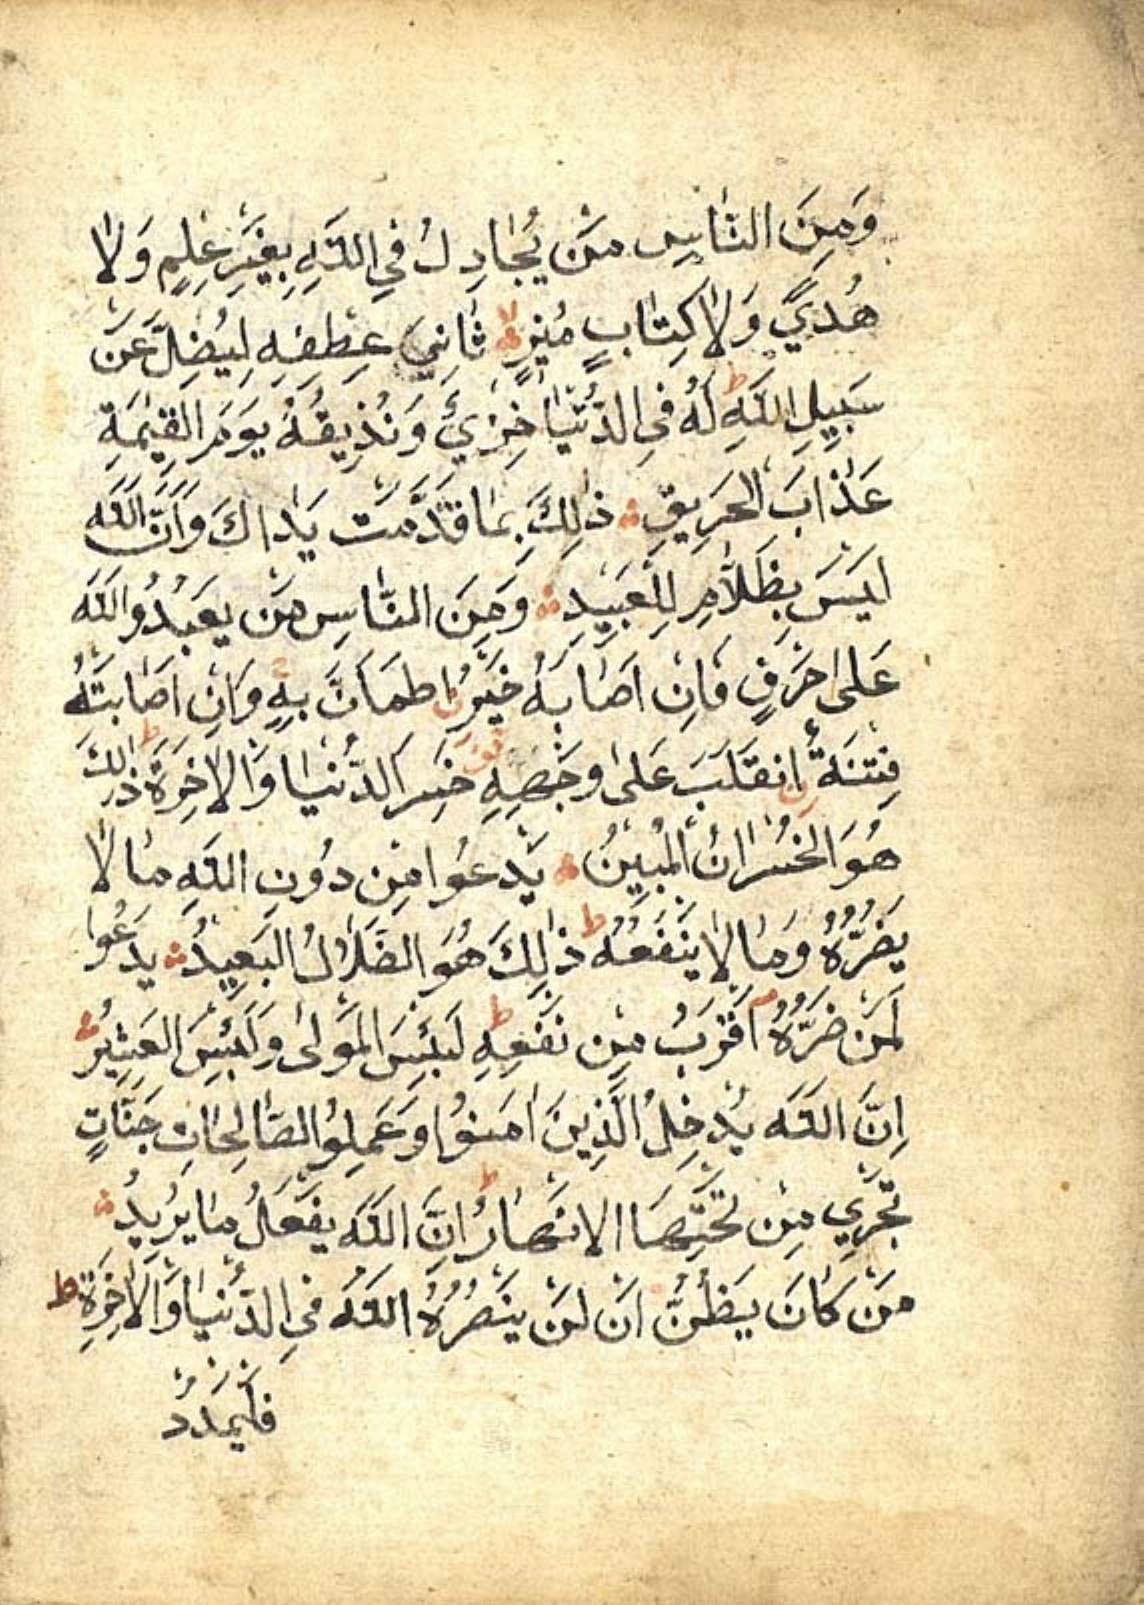 وَمِنَ النَّاسِ مَنْ يُجَادِلُ فِي اللَّهِ بِغَيْرِ عِلْمٍ وَلَا
هُدًي وَلَا كِتَابٍ مُنِيرٍ لا ثَانِيَ عِطْفِهِ لِيُضِلَّ عَنْ
سَبِيلِ اللَّهِ ط لَهُ فِي الدُّنْيَا خِزْيٌ وَنُذِيقُهُ يَوْمَ الْقِيٰمَةِ
عَذَابَ الْحَرِيقِ ذٰلِكَ بِمَا قَدَّمَتْ يَدَاكَ وَاَنَّ اللَّهَ
لَيْسَ بِظَلَّامٍ لِلْعَبِيدِ وَمِنَ النَّاسِ مَنْ يَعْبُدُ اللَّهَ
عَلٰى حَرْفٍ فَاِنْ اَصَابَهُ خَيْرٌ اطْمَاَنَّ بِهِ ج وَاِنْ اَصَابَتْهُ
فِتْنَةٌ انْقَلَبَ عَلٰى وَجْهِهِ قف خَسِرَ الدُّنْيَا وَالْاٰخِرَةَ ط ذٰلِكَ
هُوَ الْخُسْرَانُ الْمُبِينُ يَدْعُوا مِنْ دُونِ اللَّهِ مَا لَا
يَضُرُّهُ وَمَا لَا يَنْفَعُهُ ط ذٰلِكَ هُوَ الضَّلَالُ الْبَعِيدُ يَدْعُوا
لَمَنْ ضَرُّهُ اَقْرَبُ مِنْ نَفْعِهِ ط لَبِئْسَ الْمَوْلٰى وَلَبِئْسَ الْعَشِيرُ
اِنَّ اللَّهَ يُدْخِلُ الَّذِينَ اٰمَنُوا وَعَمِلُوا الصَّالِحَاتِ جَنَّاتٍ
تَجْرِي مِنْ تَحْتِهَا الْاَنْهَارُ ط اِنَّ اللَّهَ يَفْعَلُ مَا يُرِيدُ
مَنْ كَانَ يَظُنُّ اَنْ لَنْ يَنْصُرَهُ اللَّهُ فِي الدُّنْيَا وَالْاٰخِرَةِ ط
فَلْيَمْدُدْ